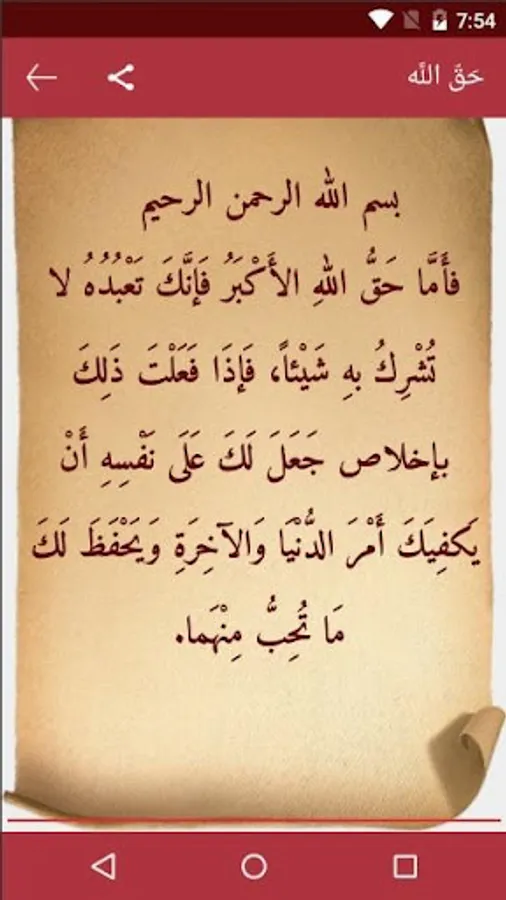 7:54
حَقّ اللَّه
بسم الله الرحمن الرحيم
فأَمَّا حَقُّ اللهِ الأَكْبَرُ فَإنَّكَ تَعْبُدُهُ لا
تُشْرِكُ بهِ شَيْئاً، فَإذَا فَعَلْتَ ذَلِكَ
بإخلاص جَعَلَ لَكَ عَلَى نَفْسِهِ أَنْ
يَكفِيَكَ أَمْرَ الدُّنْيَا وَالآخِرَةِ وَيَحْفَظَ لَكَ
مَا تُحِبُّ مِنْهَما.